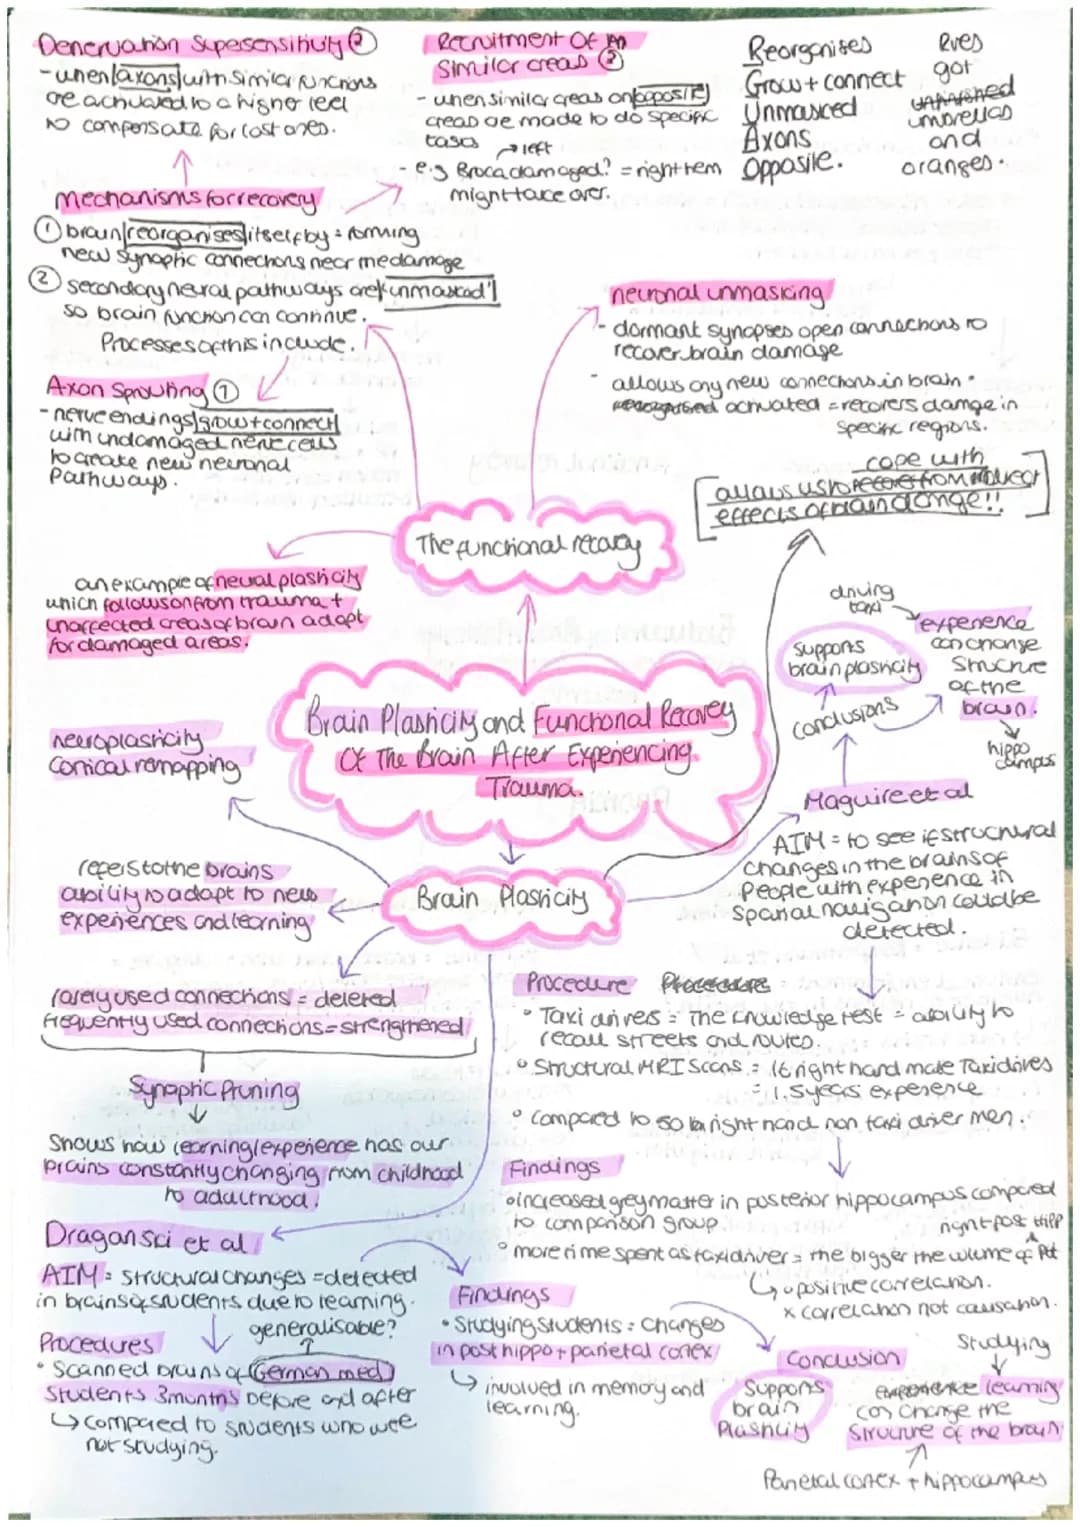 Denervation Supersensitivity ②
- when axons with similar functions
are activated to a higher level
to compensate for lost ones.
Recruitment Of
Similar areas ③
- when similar areas on opposite
areas are made to do specific
tasks
→ left
- e.g Broca damaged? = right hem
might take over.
Reorganises
Grow + connect
Unmasked
Axons
Opposite.
Rves
got
umbrellas
and
oranges.
mechanisms for recovery
① brain reorganises itself by = forming
new synaptic connections near the damage
② secondary neural pathways are 'unmasked'
so brain function can continue.
Processes of this include.
Axon Sprouting ①
- nerve endings grow + connect
with undamaged nerve cells
to create new neuronal
Pathways.
neuronal unmasking
- dormant synapses open connections to
recover brain damage
- allows any new connections in brain.
activated = recovers damage in
specific regions.
cope with
allows us to recover from indirect
effects of brain damage!!
The functional recovery
an example of neural plasticity
which follows on from trauma +
unaffected areas of brain adapt
for damaged areas.
Brain Plasticity and Functional Recovery
Of The Brain After Experiencing
Trauma.
neuroplasticity
cortical remapping
driving
taxi
experience
can change
structure
of the
brain.
hippo
campus
supports
brain plasticity
conclusions
Maguire et al
AIM = to see if structural
changes in the brains of
people with experience in
spatial navigation could be
detected.
refers to the brains
ability to adapt to new
experiences and learning
Brain Plasticity
rarely used connections = deleted
frequently used connections = strengthened
Synaptic Pruning
Shows how learning/experience has our
brains constantly changing from childhood
to adulthood.
Procedure Procedure
• Taxi drivers = The knowledge test = ability to
recall streets and routes.
• Structural MRI Scans = 16 right hand male Taxi drivers
= 1.5 years experience
• compared to 50 right hand non taxi driver men.
Findings
• increased grey matter in posterior hippocampus compared
to comparison group.
right post Hipp
• more time spent as taxi driver = the bigger the volume of
↳ positive correlation.
x correlation not causation.
Draganski et al
AIM = structural changes = detected
in brains of students due to learning.
generalisable?
Procedures
• Scanned brains of German med
Students 3 months before and after
↳ compared to students who were
not studying.
Findings
• Studying students = changes
in post hippo + parietal cortex
↳ involved in memory and
learning.
Conclusion
Supports
brain
Plasticity
Studying
experience learning
can change the
structure of the brain
Parietal cortex + hippocampus